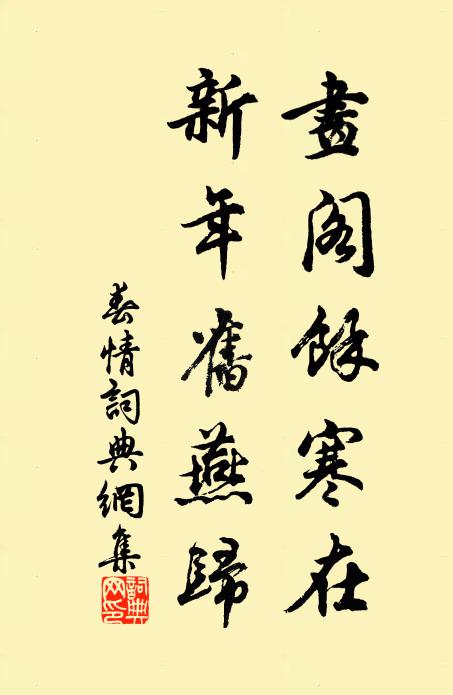 畫閣餘寒在
新年舊燕歸
春情詞典網集
詞典网印